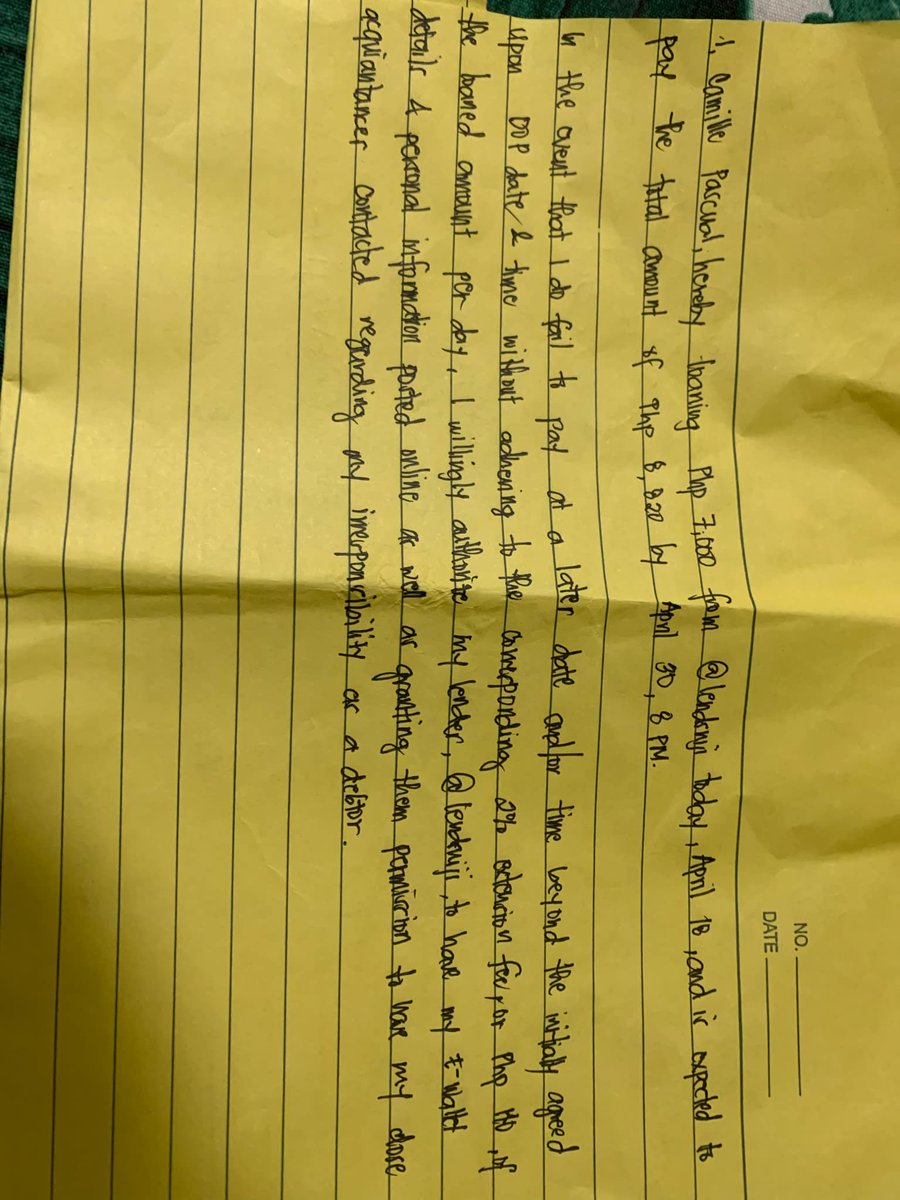 NO.
DATE
I, Camille Pascual, hereby loaning Php 7,000 from @lendmiji today, April 18, and is expected to
pay the total amount of Php 8,820 by April 30, 8 PM.
In the event that I do fail to pay at a later date and/or time beyond the initially agreed
upon DOP date & time without adhering to the corresponding 2% extension fee, or Php 140, of
the loaned amount per day, I willingly authorize my lender, @lendmiji, to have my E-wallet
details & personal information posted online as well as granting them permission to have my close
acquiantances contacted regarding my irresponsibility as a debtor.